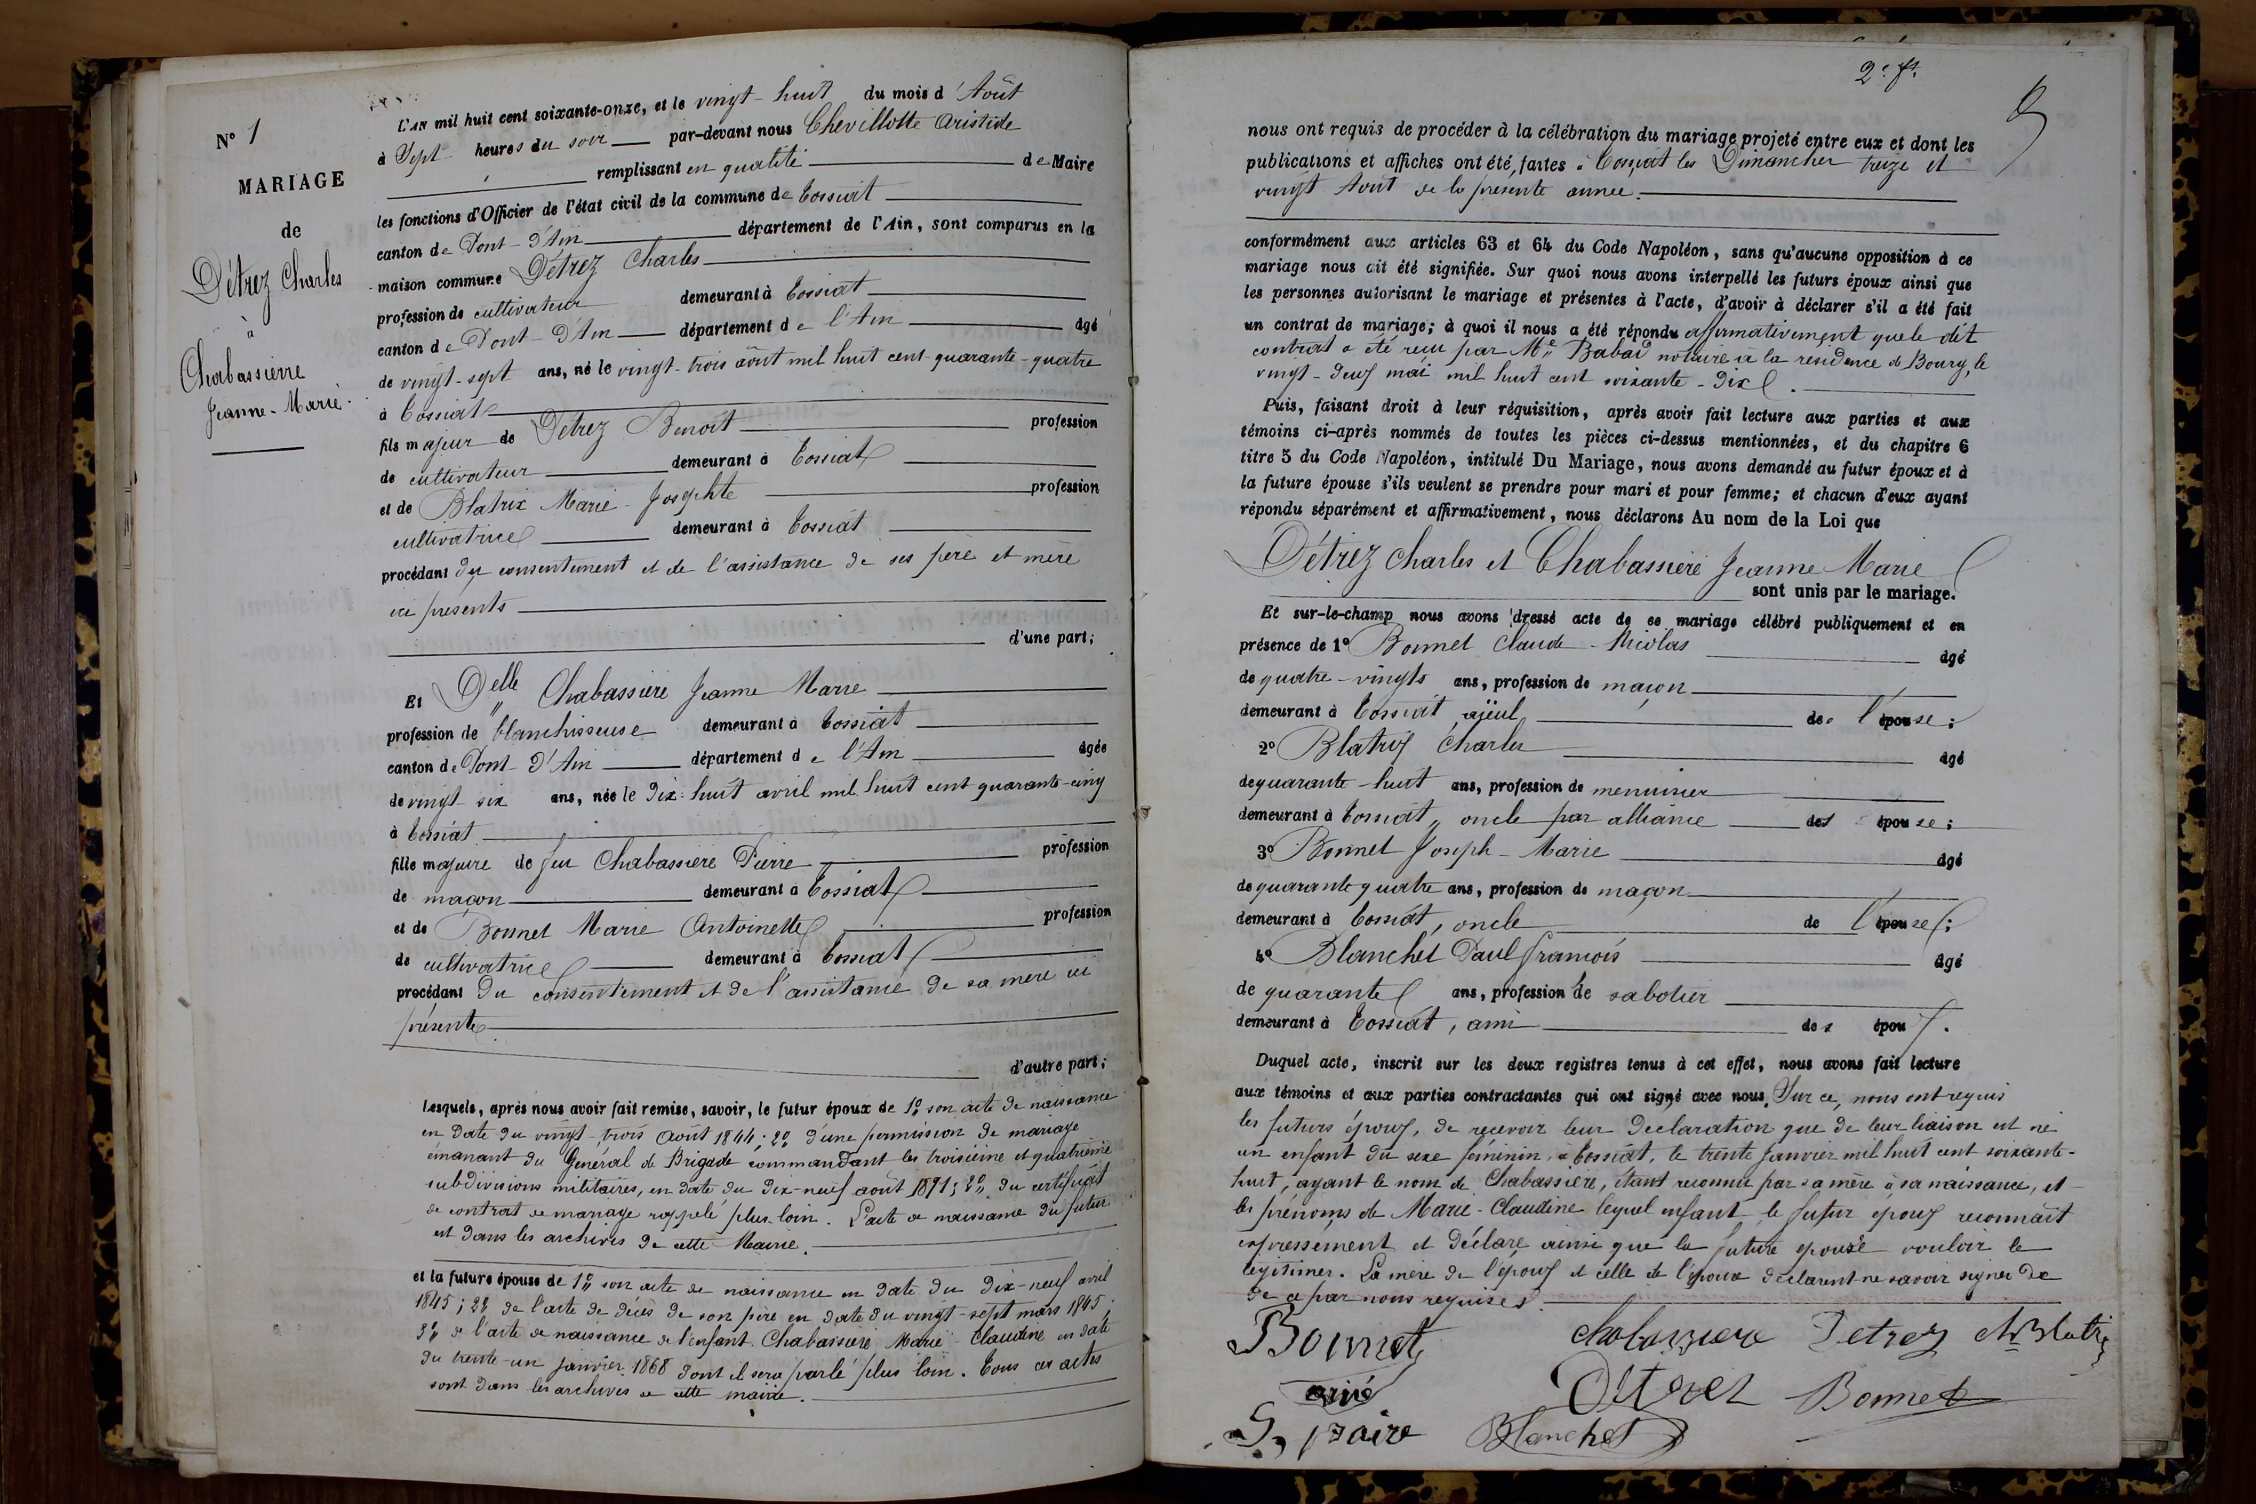 N° 1
MARIAGE
de
Détrez Charles
à
Chabassière
Jeanne-Marie.
L'AN mil huit cent soixante-onze, et le vingt-huit du mois d'Août
à Sept heures du soir par-devant nous Chevillotte Aristide
remplissant en qualité de Maire
les fonctions d'Officier de l'état civil de la commune de Tossiat
canton de Pont-d'Ain département de l'Ain, sont comparus en la
maison commune Détrez Charles
profession de cultivateur demeurant à Tossiat
canton de Pont-d'Ain département de l'Ain âgé
de vingt-sept ans, né le vingt-trois août mil huit cent quarante-quatre
à Tossiat
fils majeur de Détrez Benoît profession
de cultivateur demeurant à Tossiat
et de Blatrix Marie-Josephte profession
cultivatrice demeurant à Tossiat
procédant du consentement et de l'assistance de ses père et mère
ici présents
d'une part;
Et Delle Chabassière Jeanne Marie
profession de blanchisseuse demeurant à Tossiat
canton de Pont-d'Ain département de l'Ain âgée
de vingt six ans, née le dix-huit avril mil huit cent quarante-cinq
à Tossiat
fille majeure de feu Chabassière Pierre profession
de maçon demeurant à Tossiat
et de Bonnet Marie Antoinette profession
de cultivatrice demeurant à Tossiat
procédant du consentement et de l'assistance de sa mère ici
présente
d'autre part;
Lesquels, après nous avoir fait remise, savoir, le futur époux de 1° son acte de naissance
en date du vingt-trois Août 1844; 2° d'une permission de mariage
émanant du Général de Brigade commandant les troisième et quatrième
subdivisions militaires, en date du dix-neuf août 1871; 3° du certificat
de contrat de mariage rappelé plus loin. L'acte de naissance du futur
est dans les archives de cette Mairie.
et la future épouse de 1° son acte de naissance en date du dix-neuf avril
1845; 2° de l'acte de décès de son père en date du vingt-sept mars 1845;
3° de l'acte de naissance de l'enfant Chabassière Marie Claudine en date
du trente-un janvier 1868 dont il sera parlé plus loin. Tous ces actes
sont dans les archives de cette mairie.
2e ft.
nous ont requis de procéder à la célébration du mariage projeté entre eux et dont les
publications et affiches ont été faites à Tossiat les Dimanches treize et
vingt Août de la présente année.
conformément aux articles 63 et 64 du Code Napoléon, sans qu'aucune opposition à ce
mariage nous ait été signifiée. Sur quoi nous avons interpellé les futurs époux ainsi que
les personnes autorisant le mariage et présentes à l'acte, d'avoir à déclarer s'il a été fait
un contrat de mariage; à quoi il nous a été répondu affirmativement que le dit
contrat a été reçu par Me Babad notaire à la résidence de Bourg, le
vingt-deux mai mil huit cent soixante-dix.
Puis, faisant droit à leur réquisition, après avoir fait lecture aux parties et aux
témoins ci-après nommés de toutes les pièces ci-dessus mentionnées, et du chapitre 6
titre 5 du Code Napoléon, intitulé Du Mariage, nous avons demandé au futur époux et à
la future épouse s'ils veulent se prendre pour mari et pour femme; et chacun d'eux ayant
répondu séparément et affirmativement, nous déclarons Au nom de la Loi que
Détrez Charles et Chabassière Jeanne Marie
sont unis par le mariage.
Et sur-le-champ nous avons dressé acte de ce mariage célébré publiquement et en
présence de 1° Bonnet Claude-Nicolas âgé
de quatre-vingts ans, profession de maçon
demeurant à Tossiat, aïeul de l'épouse;
2° Blatrix Charles âgé
de quarante-huit ans, profession de menuisier
demeurant à Tossiat, oncle par alliance des épouse;
3° Bonnet Joseph-Marie âgé
de quarante quatre ans, profession de maçon
demeurant à Tossiat, oncle de l'épouse;
4° Blanchet Paul François âgé
de quarante ans, profession de sabotier
demeurant à Tossiat, ami des époux.
Duquel acte, inscrit sur les deux registres tenus à cet effet, nous avons fait lecture
aux témoins et aux parties contractantes qui ont signé avec nous. Sur ce, nous ont requis
les futurs époux, de recevoir leur déclaration que de leur liaison est né
un enfant du sexe féminin, à Tossiat, le trente janvier mil huit cent soixante-
huit, ayant le nom de Chabassière, étant reconnu par sa mère à sa naissance, et
les prénoms de Marie-Claudine lequel enfant le futur époux reconnaît
expressément et déclare ainsi que la future épouse vouloir le
légitimer. La mère de l'époux et celle de l'épouse déclarent ne savoir signer de
de ce par nous requises.
Bonnet chabassiere Detrez Ch Blatrix
Detrez Bonnet
maire Blanchet